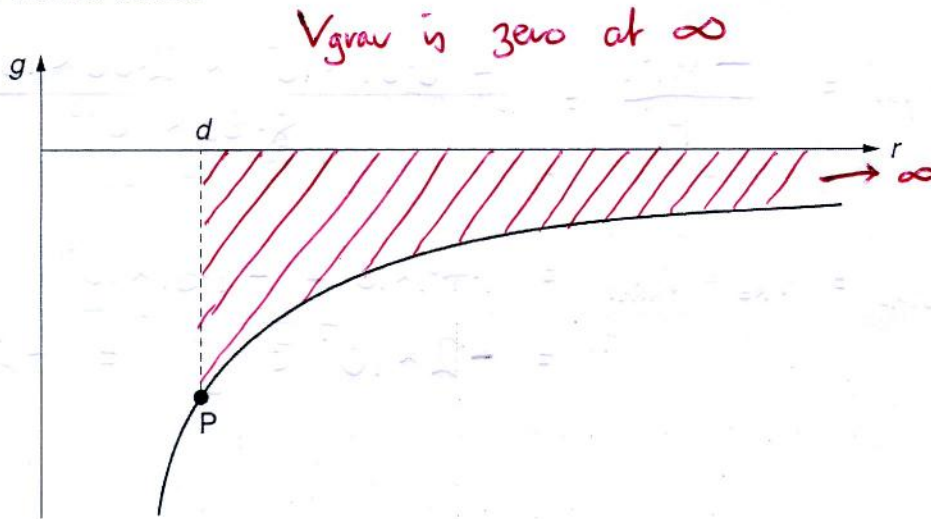 Vgrav is zero at ∞
g
d
r
→ ∞
P